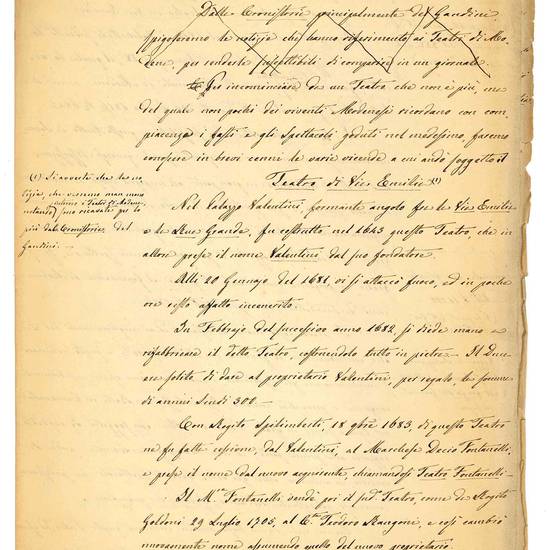 Dalle Cronistorie principalmente del Gandini
spigoleremo le notizie che hanno riferimento ai Teatri di Mo-
dena, per renderle suscettibili di comparire in un giornale.
Per incominciare da un Teatro che non è più, ma
del quale non pochi dei viventi Modenesi ricordano con com-
piacenza i fasti e gli Spettacoli goduti nel medesimo faremo
conoscere in brevi cenni le varie vicende a cui andò soggetto il
Teatro di Via Emilia (1)
(1) Si avverte che le no-
tizie, che verremo man mano
intorno i Teatri di Modena
sono ricavate per lo
più dalla Cronistoria del
Gandini.
Nel Palazzo Valentini, formante angolo fra la Via Emilia
e la Rua Grande, fu costrutto nel 1643 questo Teatro, che in
allora prese il nome Valentini dal suo fondatore.
Alli 20 Gennajo del 1681, vi si attaccò fuoco, ed in poche
ore restò affatto incenerito.
In Febbrajo del successivo anno 1682, si diede mano a
riffabbricare il detto Teatro, costruendolo tutto in pietra — Il Duca
era solito di dare al proprietario Valentini, per regalo, la somma
di annui Scudi 300. —
Con Rogito Spilimberti, 18 9bre 1683, di questo Teatro
ne fu fatta cessione, dal Valentini, al Marchese Decio Fontanelli,
e prese il nome dal nuovo acquirente, chiamandosi Teatro Fontanelli —
Il M.se Fontanelli vendè poi il sud.o Teatro, come da Rogito
Goldoni 29 Luglio 1705, al C.te Teodoro Rangoni, e così cambiò
nuovamente nome assumendo quello del nuovo proprietario.